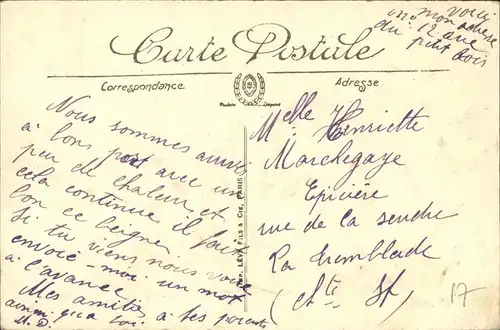 voici
mon adresse
12 ave
du petit bois
Carte Postale
Correspondance
Adresse
Modèle Déposé
Nous sommes arrivés
à bons port avec un
peu de chaleur et
cela continue il fait
bon ce beigner
Si tu viens nous voire
envoie-moi un mot
à l'avance
Mes amitiés à tes parents
ainsi qu'a toi
H. D.
IMP. LEVY FILS & CIE, PARIS
Melle Henriette
Marchegaye
Epicière
rue de la seudre
La Tremblade
(Cte If)
17